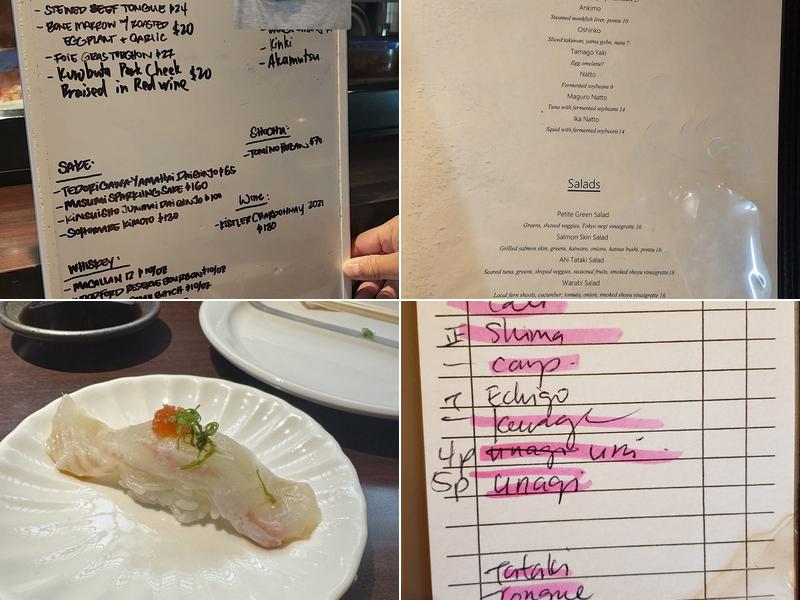 - STEWED BEEF TONGUE $24
- BONE MARROW W/ ROASTED $20
EGGPLANT + GARLIC
- FOIE GRAS TORCHON $27
- Kurobuta Pork Cheek $20
Braised in Red wine
- Kinki
- Akamutsu
SHOCHU:
- TOMINO HOZAN $70
SAKE:
- TEDORIGAWA YAMAHAI DAIGINJO $65
- MASUMI SPARKLING SAKE $160
- KINSUISHO JUNMAI DAIGINJO $100
- SOHOMARE KIMOTO $130
Wine:
- KISTLER CHARDONNAY 2021
$130
WHISKEY:
- MACALLAN 12 $10/OZ
WOODFORD RESERVE BOURBON $10/OZ
BATCH $10/OZ
Ankimo
Steamed monkfish liver, ponzu 10
Oshinko
Sliced takuwan, yama gobo, nasu 7
Tamago Yaki
Egg omelette7
Natto
Fermented soybeans 6
Maguro Natto
Tuna with fermented soybeans 14
Ika Natto
Squid with fermented soybeans 14
Salads
Petite Green Salad
Greens, shaved veggies, Tokyo negi vinaigrette 16
Salmon Skin Salad
Grilled salmon skin, greens, kaiware, onions, katsuo bushi, ponzu 16
Ahi Tataki Salad
Seared tuna, greens, shaved veggies, seasonal fruits, smoked shoyu vinaigrette 18
Warabi Salad
Local fern shoots, cucumber, tomato, onion, smoked shoyu vinaigrette 16
正 Shima
一 carp.
Echigo
4p unagi uni
5p unagi
Tataki
Tongue